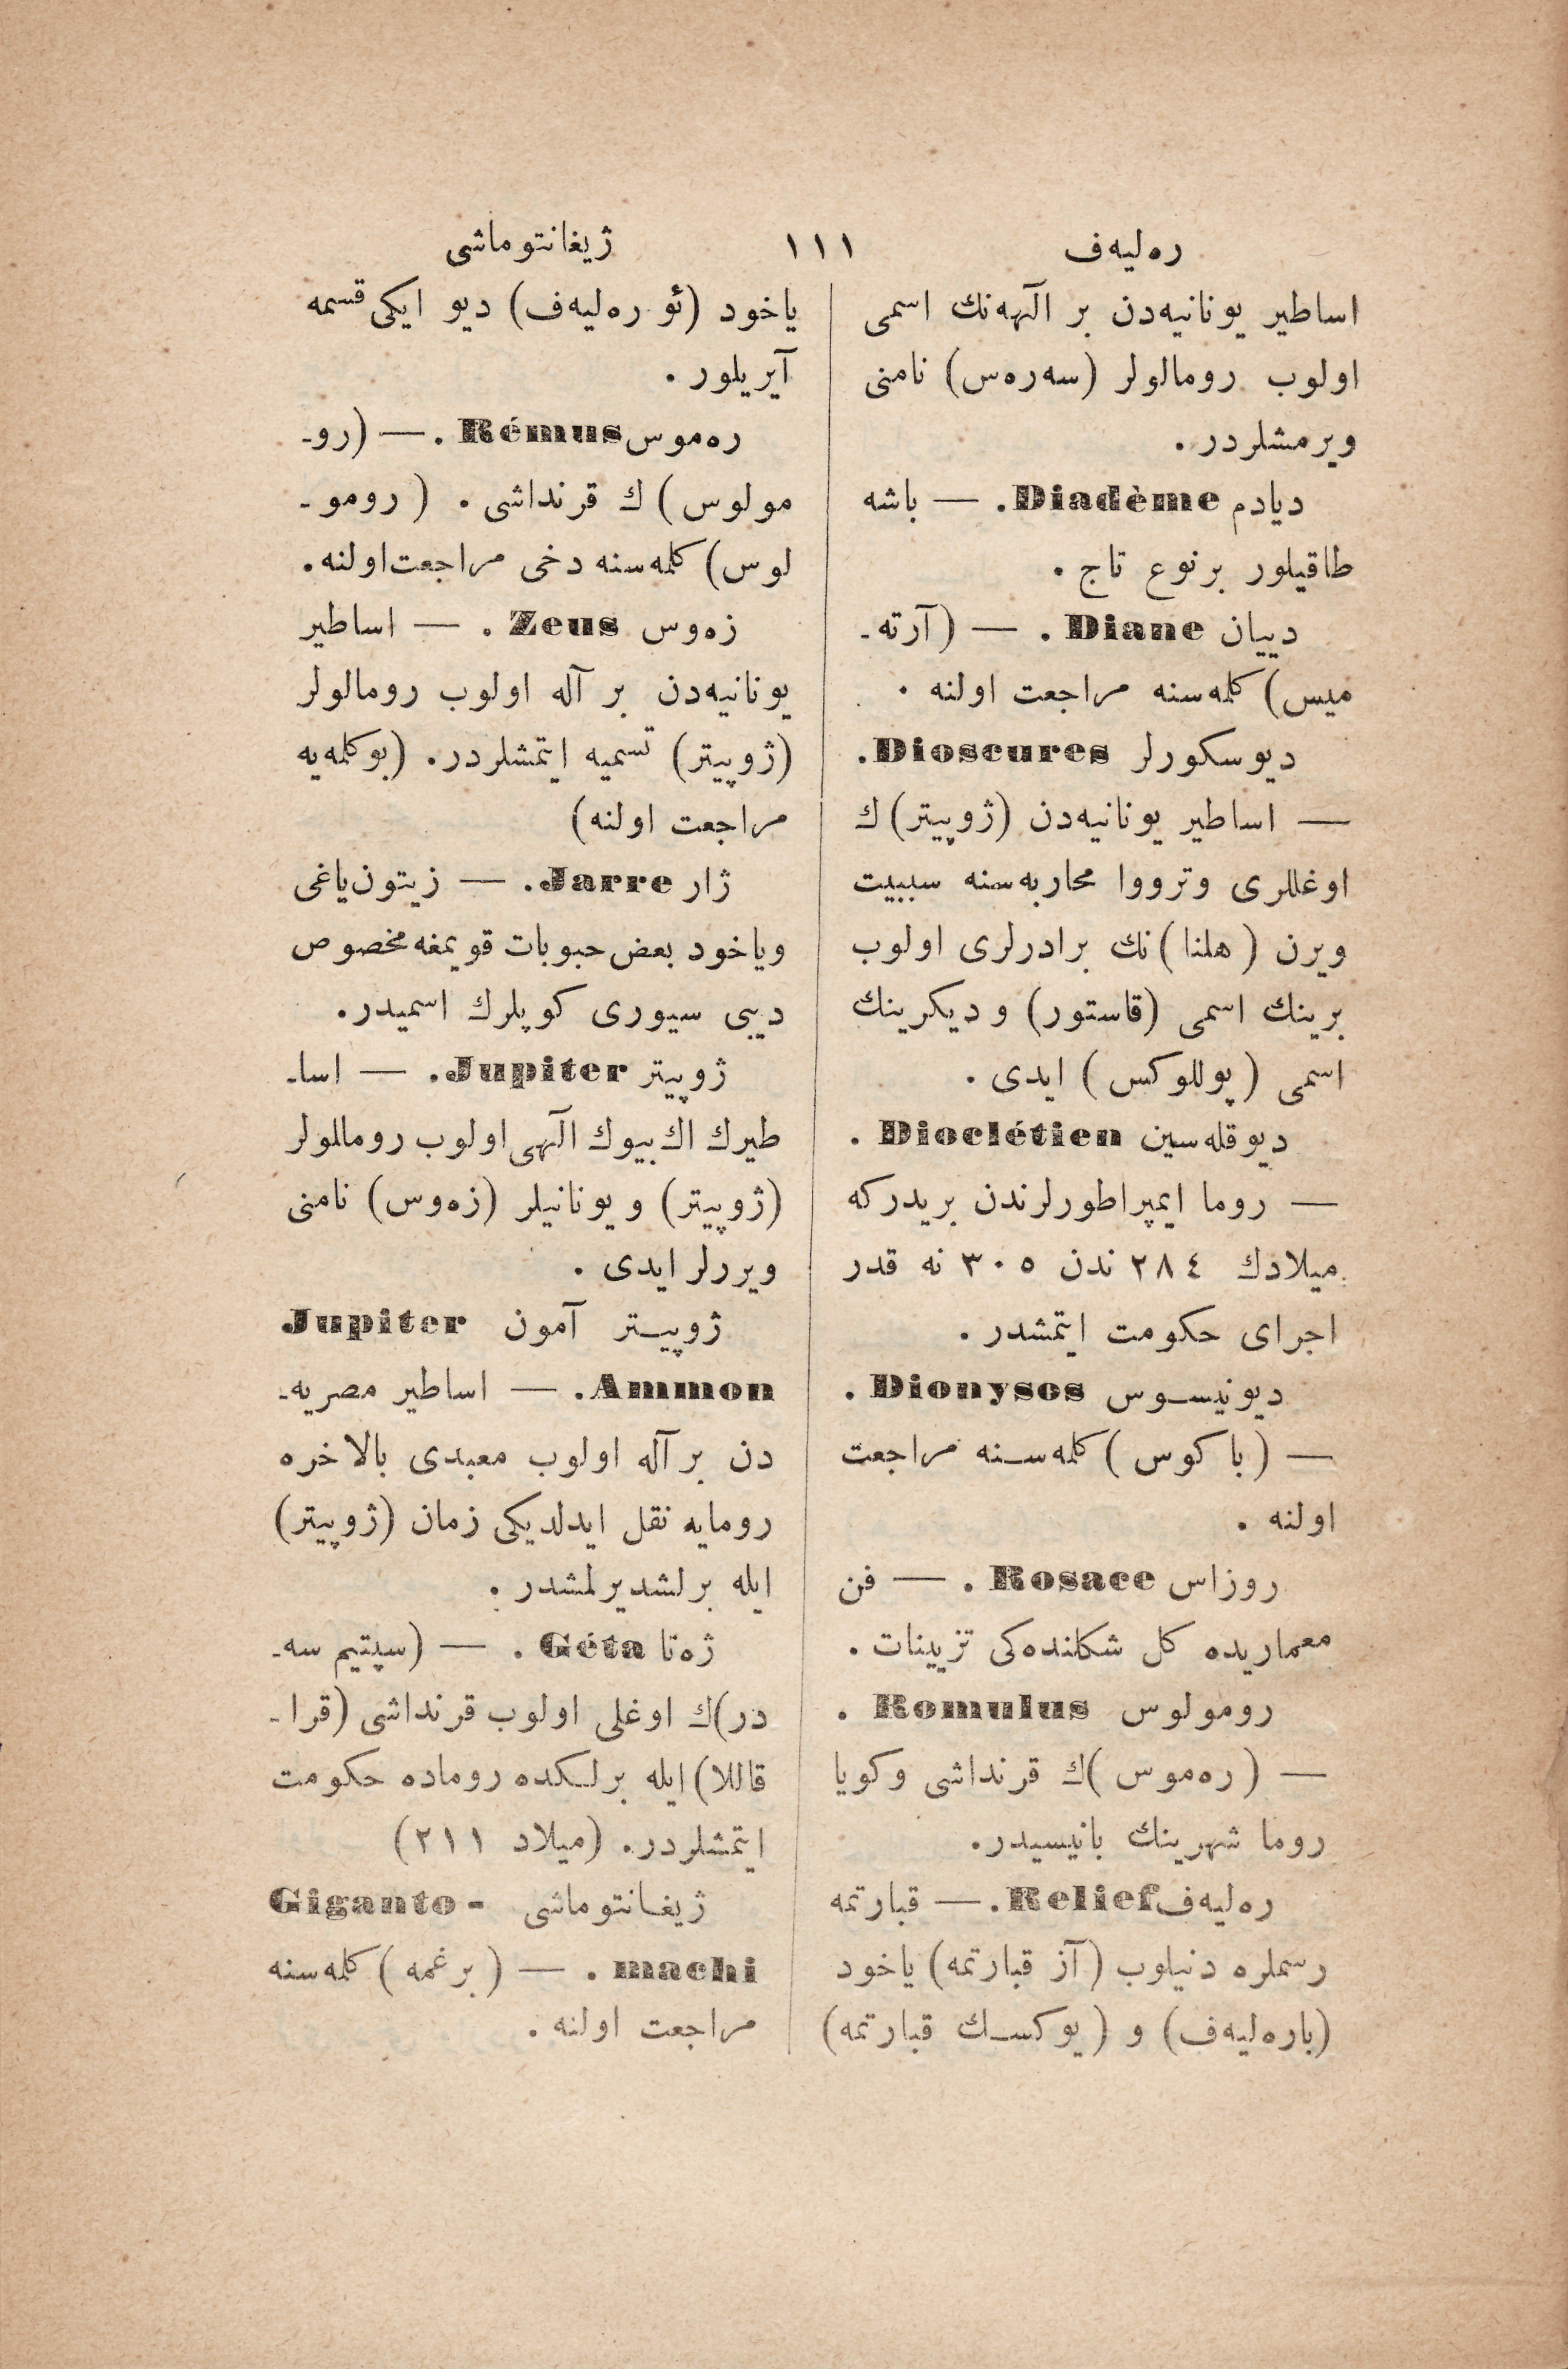 ره‌ليه‌ف ١١١ ژيغانتوماشی
اساطير يونانيه‌دن بر الٓهه‌نك اسمی
اولوب رومالولر (سه‌ره‌س) نامنی
ويرمشلردر .
ديادم Diadème. — باشه
طاقيلور برنوع تاج .
دييان Diane . — (آرته‌ـ
ميس) كله‌سنه مراجعت اولنه .
ديوسكورلر Dioscures.
— اساطير يونانيه‌دن (ژوپيتر)ك
اوغللری وترووا محاربه‌سنه سببيت
ويرن (هلنا)نك برادرلری اولوب
برينك اسمی (قاستور) و ديكرينك
اسمی (پوللوكس) ايدی .
ديوقله‌سين Dioclétien .
— روما ايمپراطورلرندن بريدركه
ميلادك ٢٨٤ ندن ٣٠٥ نه قدر
اجرای حكومت ايتمشدر .
ديونيسوس Dionysos .
— (باكوس) كله‌سنه مراجعت
اولنه .
روزاس Rosace . — فن
معماريده كل شكلنده‌كی تزيينات .
رومولوس Romulus .
— (ره‌موس)ك قرنداشی وكويا
روما شهرينك بانيسيدر.
ره‌ليه‌ف Relief. — قبارتمه
رسملره دنيلوب (آز قبارتمه) ياخود
(باره‌ليه‌ف) و (يوكسك قبارتمه)
ياخود (ئو ره‌ليه‌ف) ديو ايكی قسمه
آيريلور .
ره‌موس Rémus . — (روـ
مولوس)ك قرنداشی . (روموـ
لوس) كله‌سنه دخی مراجعت اولنه.
زه‌وس Zeus . — اساطير
يونانيه‌دن بر آله اولوب رومالولر
(ژوپيتر) تسميه ايتمشلردر. (بوكله‌يه
مراجعت اولنه)
ژار Jarre. — زيتون ياغی
وياخود بعض حبوبات قويمغه مخصوص
ديبی سيوری كوپلرك اسميدر.
ژوپيتر Jupiter. — اساـ
طيرك اك بيوك الٓهی اولوب روماللولر
(ژوپيتر) و يونانيلر (زه‌وس) نامنی
ويررلر ايدی .
ژوپيتر آمون Jupiter
Ammon. — اساطير مصريه‌ـ
دن بر آله اولوب معبدی بالاخره
رومايه نقل ايدلديكی زمان (ژوپيتر)
ايله برلشديرلمشدر .
ژه‌تا Géta . — (سپتيم سه‌ـ
در)ك اوغلی اولوب قرنداشی (قراـ
قاللا) ايله برلكده روماده حكومت
ايتمشلردر. (ميلاد ٢١١)
ژيغانتوماشی Giganto-
machi . — (برغمه) كله‌سنه
مراجعت اولنه .